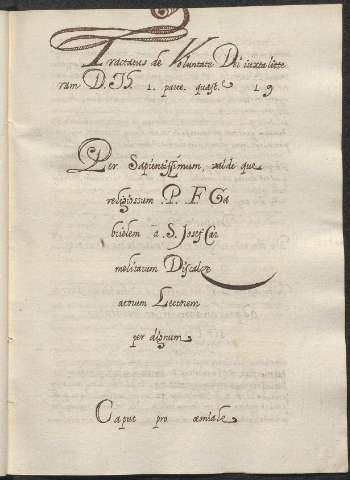 Tractatus de Voluntate Dei iuxta litte
ram D. Th. 1. parte. quæst. 19
Per Sapientissimum, valde que
religiossum P. F. Ga
brielem à S. Josef Car
melitarum Discalce
atorum Lectorem
per dignum
Caput pro œmiale